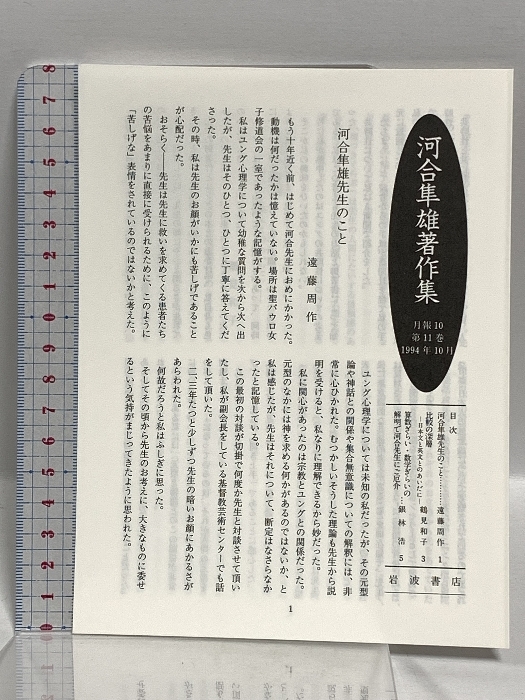 河合隼雄著作集
月報10
第11巻
1994年10月
目次
河合隼雄先生のこと…………遠藤周作 1
比較の深層
―日本文と英文とのあいだに― 鶴見和子 3
算数ぎらい・数学ぎらいの…
解明で河合先生にご近介 銀林 浩 5
岩波書店
河合隼雄先生のこと
遠藤周作
もう十年近く前、はじめて河合先生におめにかかった。
動機は何だったかは憶えていない。場所は聖パウロ女
子修道会の一室であったような記憶がする。
私はユング心理学について幼稚な質問を次から次へ出
したが、先生はそのひとつ、ひとつに丁寧に答えてくだ
さった。
その時、私は先生のお顔がいかにも苦しげであること
が心配だった。
おそらく――先生は先生に救いを求めてくる患者たち
の苦悩をあまりに直接に受けられるために、このように
「苦しげな」表情をされているのではないかと考えた。
ユング心理学については未知の私だったが、その元型
論や神話との関係や集合無意識についての解釈には、非
常に心ひかれた。むつかしいそうした理論も先生から説
明を受けると、私なりに理解できるから妙だった。
私に関心があったのは宗教とユングとの関係だった。
元型のなかには神を求める何かがあるのではないか、と
私は感じたが、先生はそれについて、断定はなさらなか
ったと記憶している。
この最初の対談が切掛で何度か先生と対談させて頂い
たし、私が副会長をしている基督教芸術センターでも話
をして頂いた。
二、三年たつと少しずつ先生の暗いお顔にあかるさが
あらわれた。
何故だろうと私はふしぎに思った。
そしてその頃から先生のお考えに、大きなものに委せ
るという気持がまじってきたように思われた。
1
0 1 2 3 4 5 6 7 8 9 0 1 2 3 4 5 6 7 8